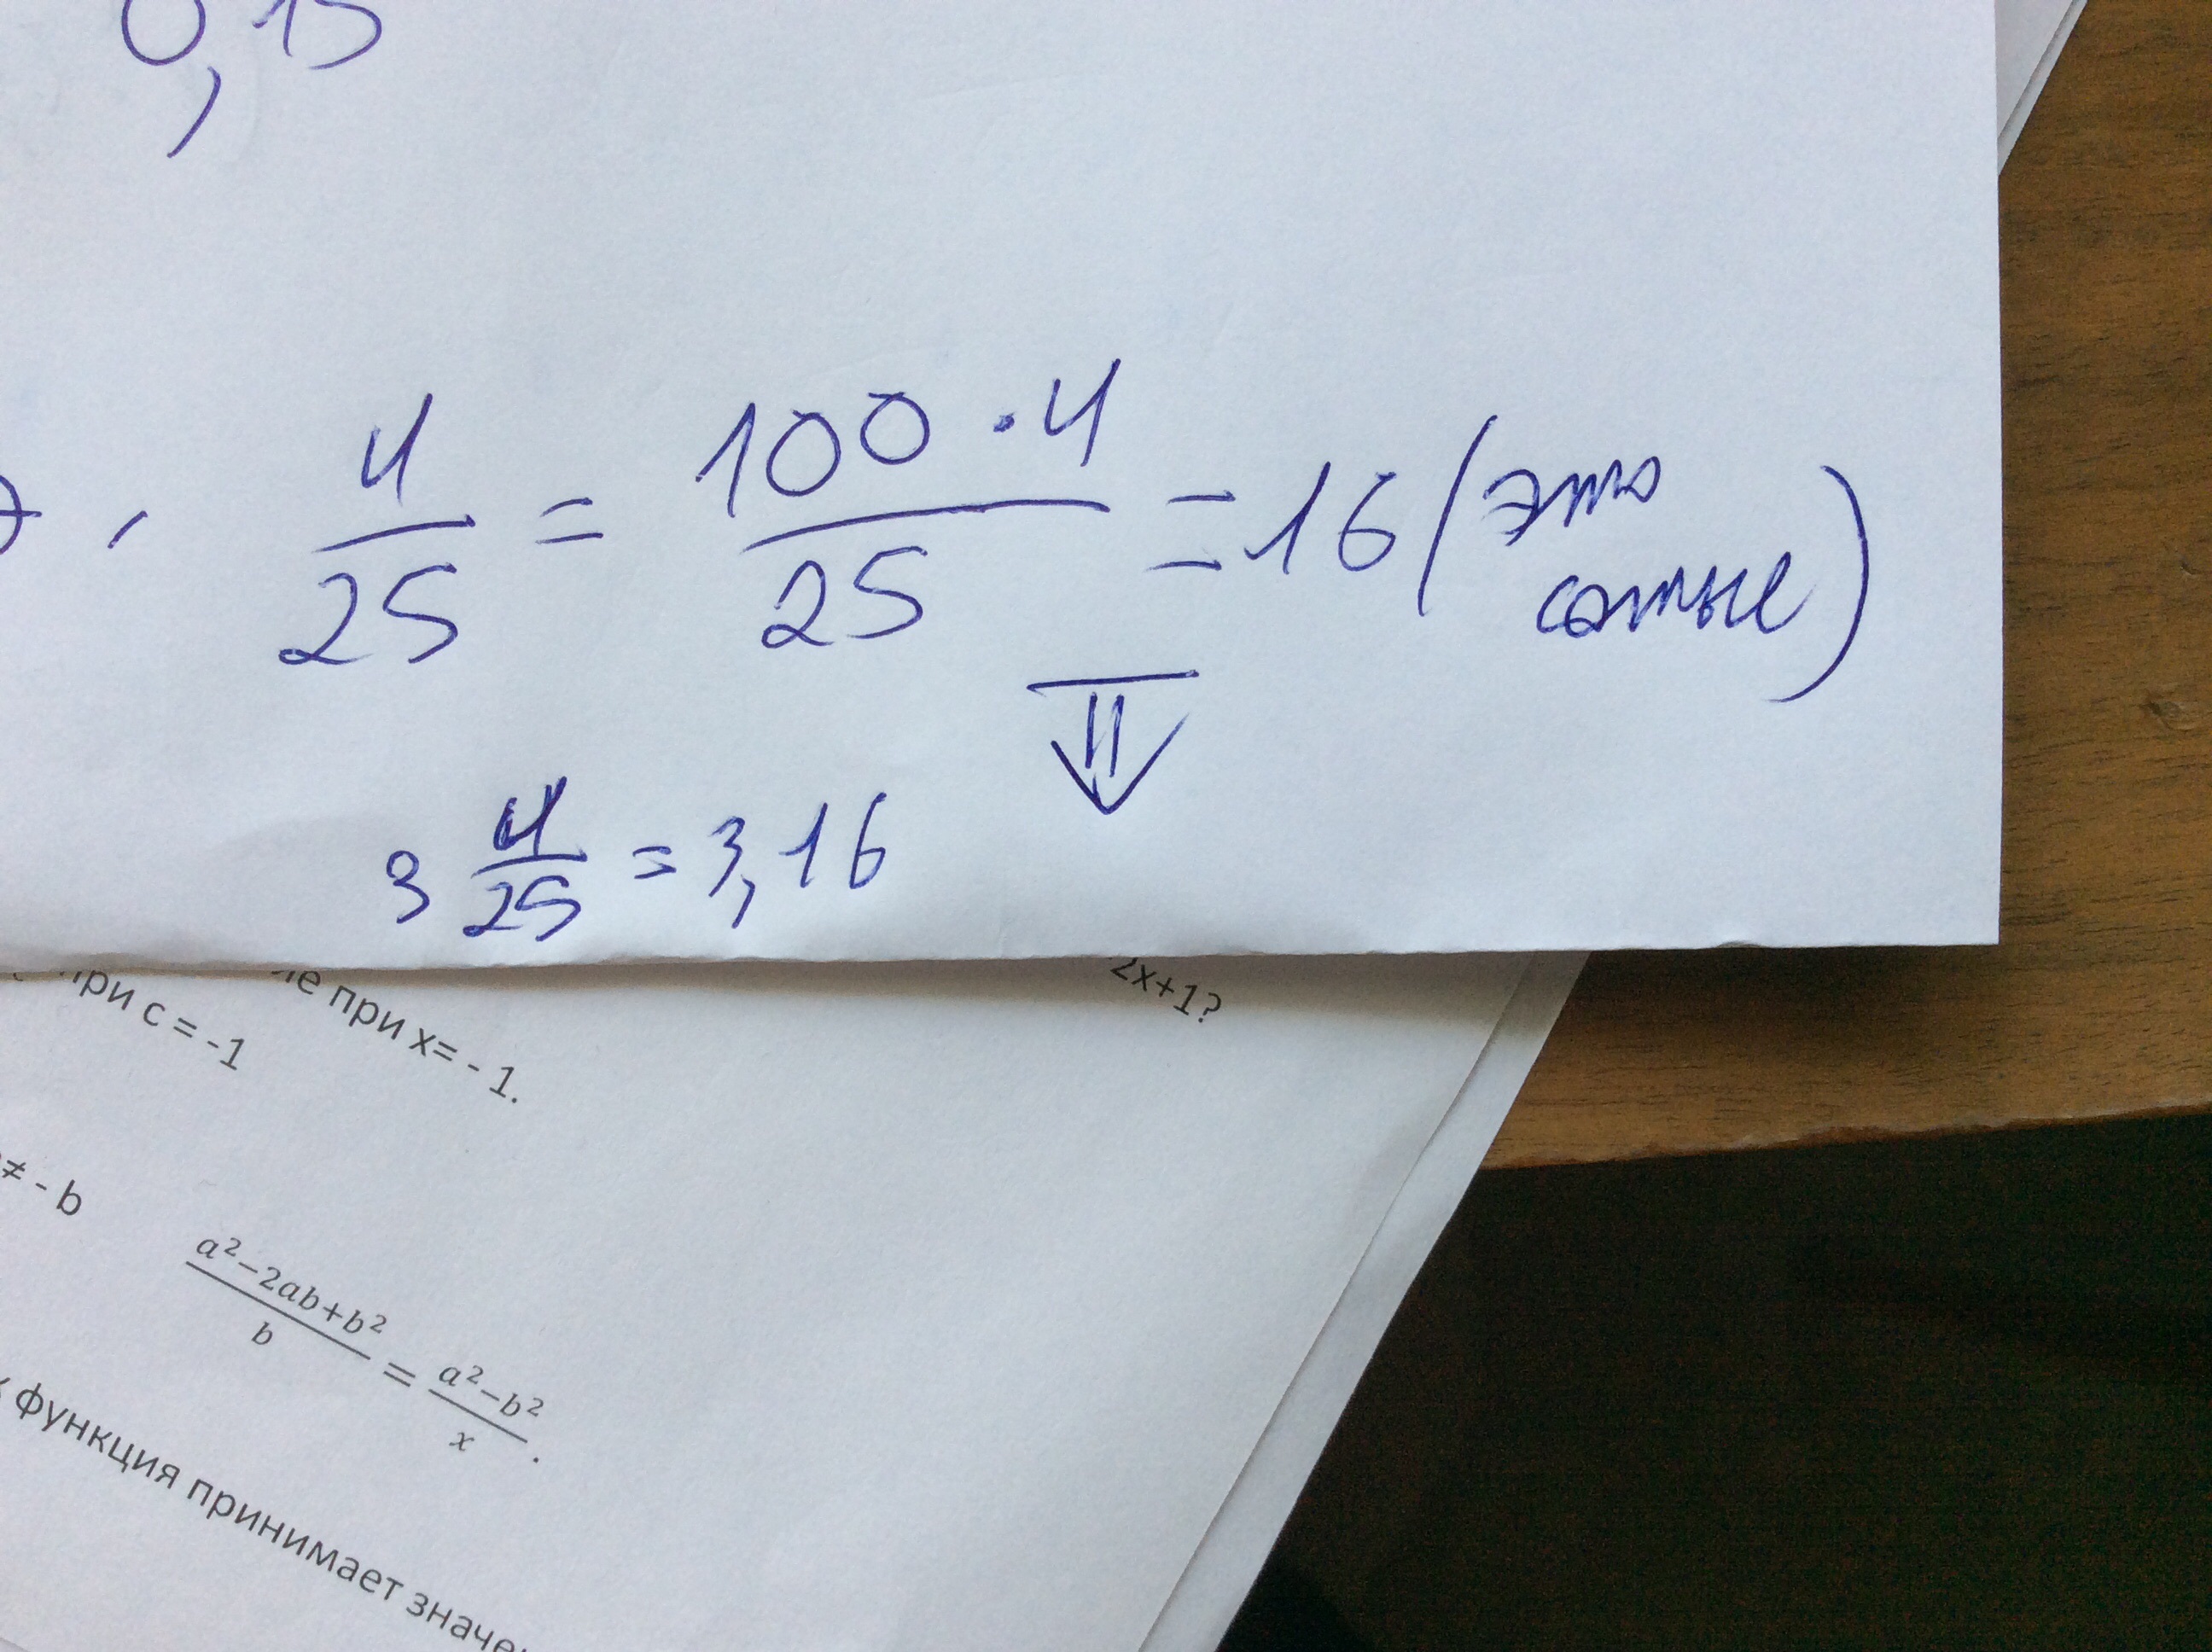 0,15
4/25 = 100·4/25 = 16 (это сотые)
3 4/25 = 3,16
2x+1?
при x= - 1.
при c = -1
≠ - b
a²−2ab+b²/b = a²−b²/x.
функция принимает